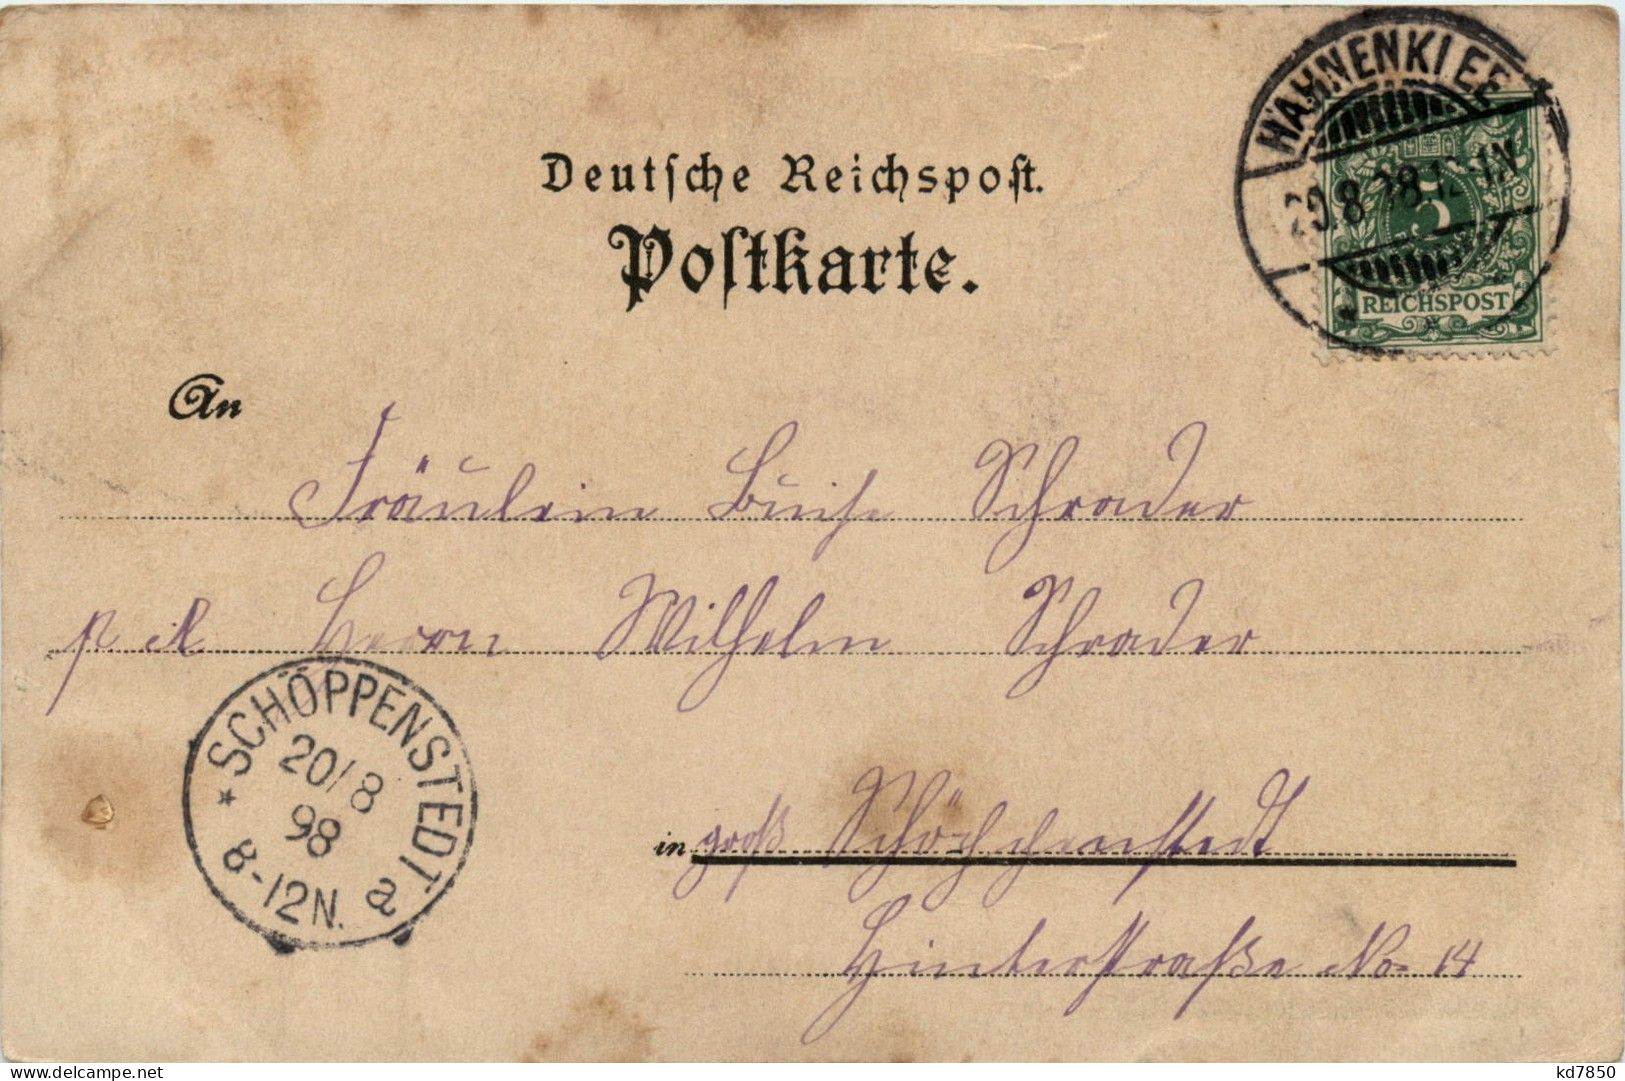 HAHNENKLEE
20.8.98.12-1N
5
REICHSPOST
Deutſche Reichspoſt.
Poſtkarte.
An
Fräulein Luise Schrader
p. A. Herrn Wilhelm Schrader
* SCHÖPPENSTEDT a
20/8
98
8-12N.
in groß Schöppenstedt
Hinterstraße No 14
kd7850